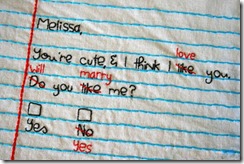 Melissa,
love
You're cute, & I think I like you.
Will marry
Do you like me?
Yes No
Yes